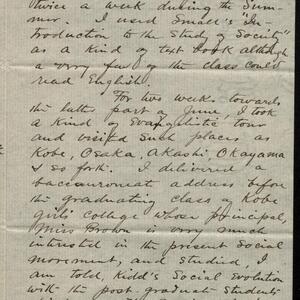 twice a week during the Sum-
mer. I used Small's "In-
troduction to the Study of Society"
as a kind of text book although
a very few of the class could
read English.
For two weeks towards
the latter part of June, I took
a kind of Evangelistic tour
and visited such places as
Kobe, Osaka, Akashi, Okayama
& so forth. I delivered a
baccaureat address before
the graduating class of Kobe
Girls' College whose principal,
Miss Brown is very much
interested in the present Social
movement, and studied, I
am told, Kidd's Social Evolution
with the post-graduate students